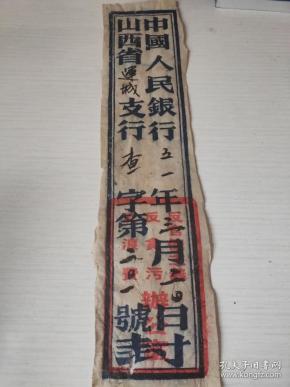 中國人民銀行五一年 月 日封
山西省運城支行查字第二〇一號
反貪污
辦
孔夫子旧书网